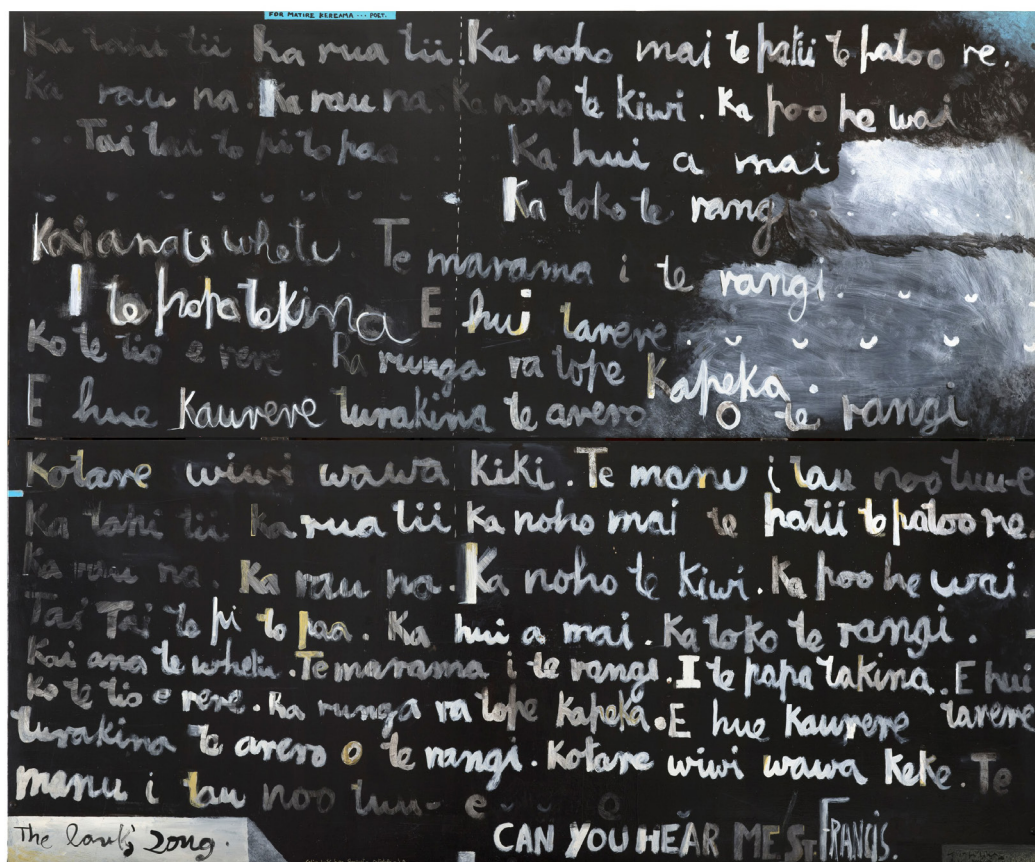 FOR MATIRE KEREAMA ... POET.
Ka tahi tii Ka rua tii. Ka noho mai te patii te patoo re.
Ka rau na. Ka rau na. Ka noho te kiwi. Ka poo he wai
Tai tai to pi to paa Ka hui a mai
Ka toko te rangi
Kai ana te whetu Te marama i te rangi.
I te popo tekina E hui tarere.
Ko te tio e rere Ra runga ra tope Kapeka.
E hue Kaurere turakina te arero O te rangi
Kotare wiwi wawa kiki. Te manu i tau noo tuu-e
Ka tahi tii Ka rua tii Ka noho mai te patii te patoo re.
Ka rau na. Ka rau na. Ka noho te kiwi. Ka poo he wai.
Tai Tai te pi to paa. Ka hui a mai. Ka toko te rangi.
Kai ana te whetu. Te marama i te rangi. I te papa takina. E hui
Ko te tio e rere. Ra runga ra tope Kapeka. E hue Kaurere tarere
turakina te arero o te rangi. Kotare wiwi wawa keke. Te
manu i tau noo tuu- e e
The lark's song.
CAN YOU HEAR ME ST. FRANCIS.